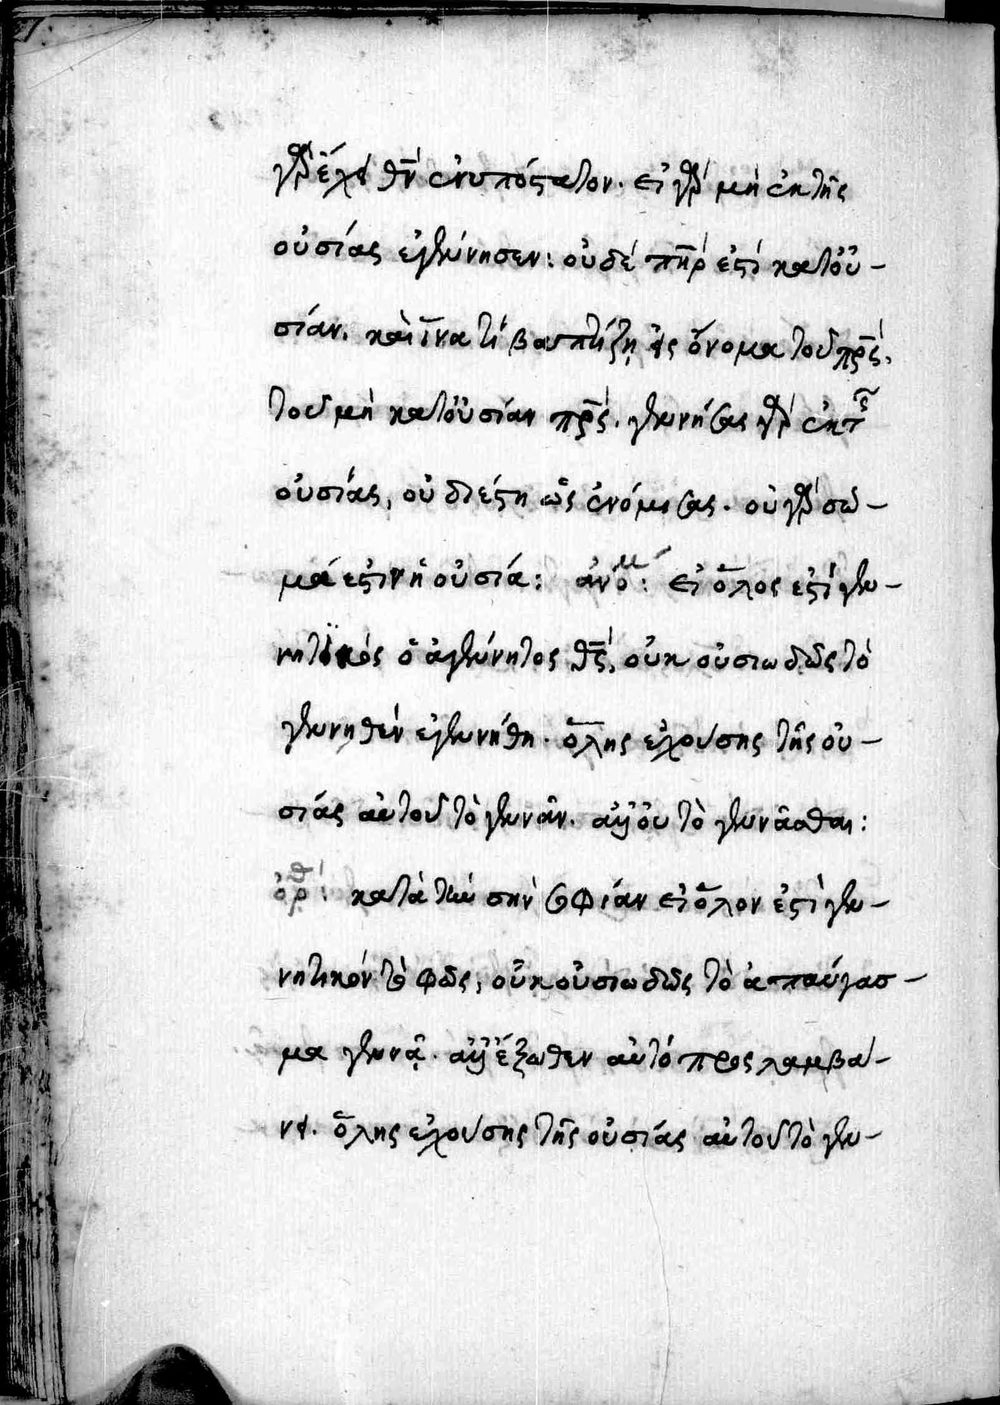 γὰρ ἔχει θν ἐνυπόστατον. εἰ γὰρ μὴ ἐκ τῆς
οὐσίας ἐγέννησεν: οὐδέ πηρ ἐστί κατ' οὐ–
σίαν. καὶ ἵνα τί βαπτίζῃ εἰς ὄνομα τοῦ πρς,
τοῦ μὴ κατ' οὐσίαν πρς. γεννήσας γὰρ ἐκ τῆς
οὐσίας, οὐ διέστη ὡς ἐνόμισας. οὐ γὰρ σῶ–
μά ἐστιν ἡ οὐσία: ἀνομ: εἰ ὅλος ἐστί γεν–
νητικός ὁ ἀγέννητος θς, οὐκ οὐσιωδῶς τὸ
γεννηθέν ἐγεννήθη. ὅλης ἐχούσης τῆς οὐ–
σίας αὐτοῦ τὸ γεννᾶν. ἀλλ' οὐ τὸ γεννᾶσθαι:
ὀρθ: κατὰ τὴν σὴν σοφίαν εἰ ὅλον ἐστὶ γεν–
νητικόν τὸ φῶς, οὐκ οὐσιωδῶς τὸ ἀπαύγασ–
μα γεννᾷ. ἀλλ' ἔξωθεν αὐτό προσλαμβά–
νει. ὅλης ἐχούσης τῆς οὐσίας αὐτοῦ τὸ γεν–